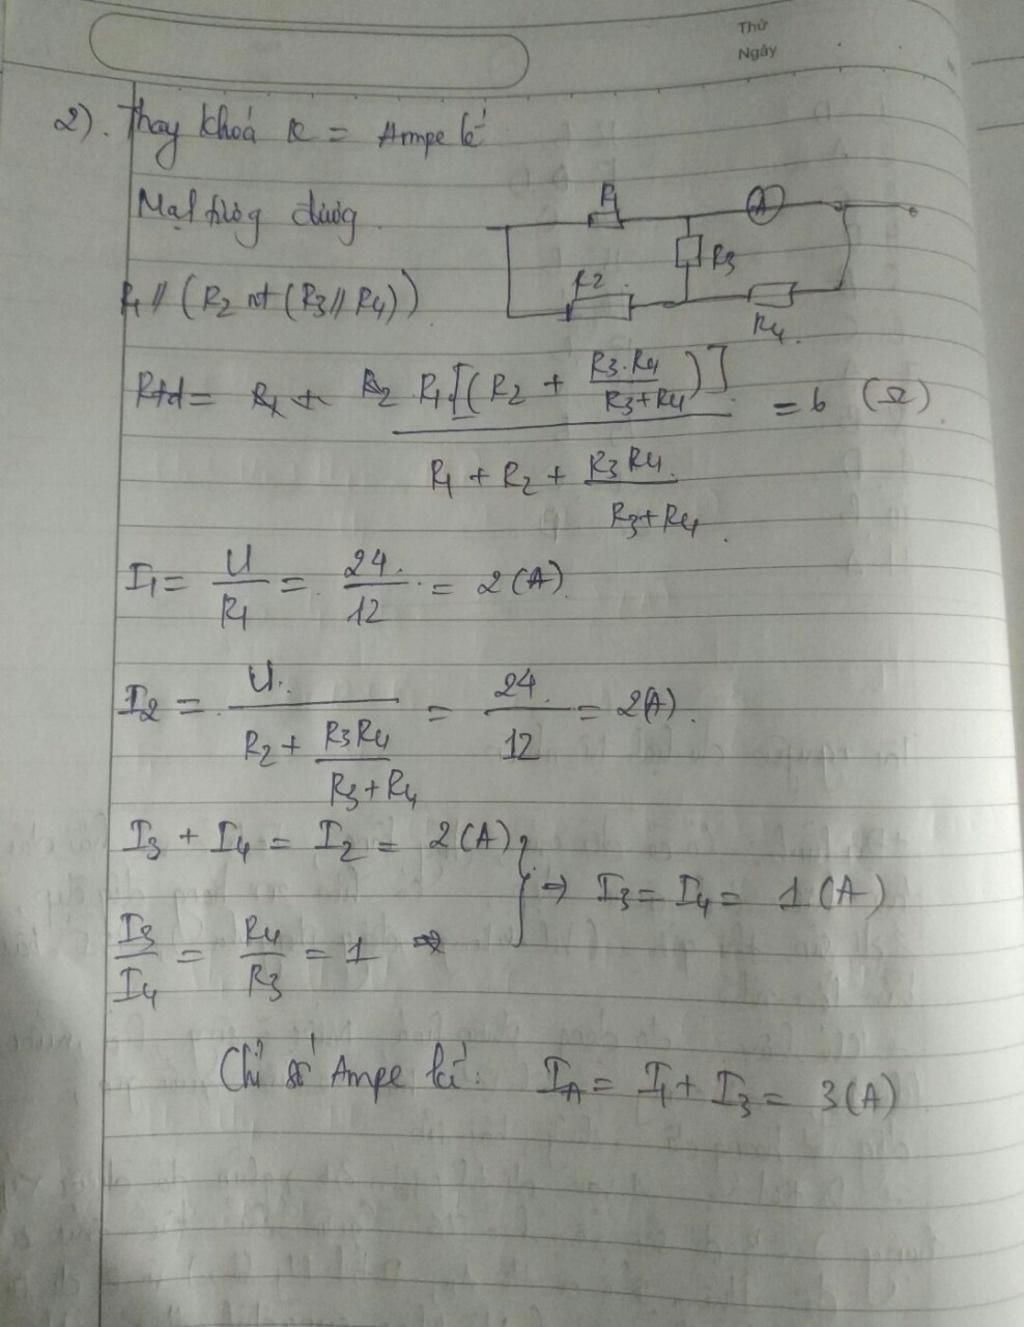 Thứ
Ngày
2). Thay khoá K = Ampe kế
Mạch tương đương
R1 // (R2 nt (R3 // R4))
R1
A
R3
R2
R4
Rtđ = R1 . [(R2 + R3.R4 / R3+R4)] / R1 + R2 + R3R4 / R3+R4 = 6 (Ω)
I1 = U / R1 = 24 / 12 = 2 (A).
I2 = U / R2 + R3R4 / R3+R4 = 24 / 12 = 2(A).
I3 + I4 = I2 = 2(A)
I3 / I4 = R4 / R3 = 1
} ⇒ I3 = I4 = 1 (A)
Chỉ số Ampe kế: IA = I1 + I3 = 3(A)